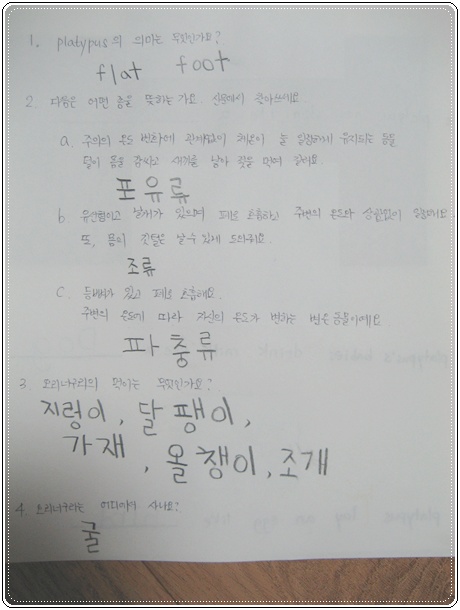 1. platypus의 의미는 무엇인가요?
flat foot
2. 다음은 어떤 층을 뜻하는 가요. 신문에서 찾아쓰세요.
a. 주위의 온도 변화에 관계없이 체온이 늘 일정하게 유지되는 동물
털이 몸을 감싸고 새끼를 낳아 젖을 먹여 길러요.
포유류
b 유선형이고 날개가 있으며 폐로 호흡하고 주변의 온도와 상관없이 일정해요
또, 몸이 깃털은 날 수 있게 도와줘요.
조류
C. 등뼈가 있고 폐로 호흡해요.
주변의 온도에 따라 자신의 온도가 변하는 변온동물이에요.
파충류
3. 오리너구리의 먹이는 무엇인가요?
지렁이, 달팽이,
가재, 올챙이, 조개
4. 오리너구리는 어디에서 사나요?
굴